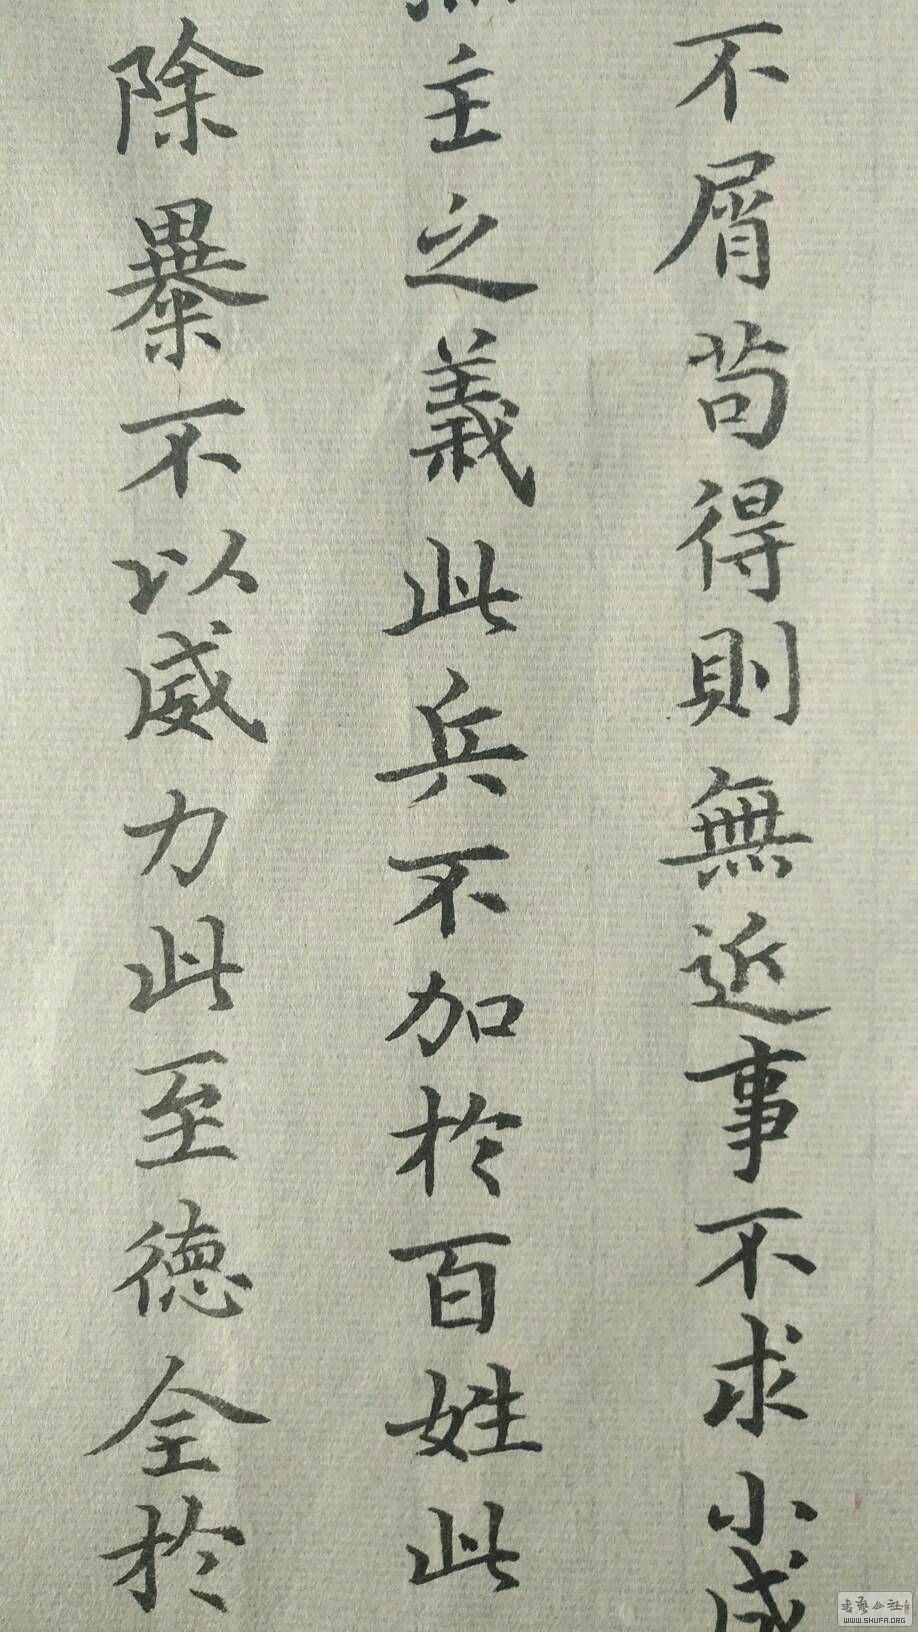 不屑苟得則無近事不求小成
主之義此兵不加於百姓此
除暴不以威力此至德全於
书艺公社
WWW.SHUFA.ORG